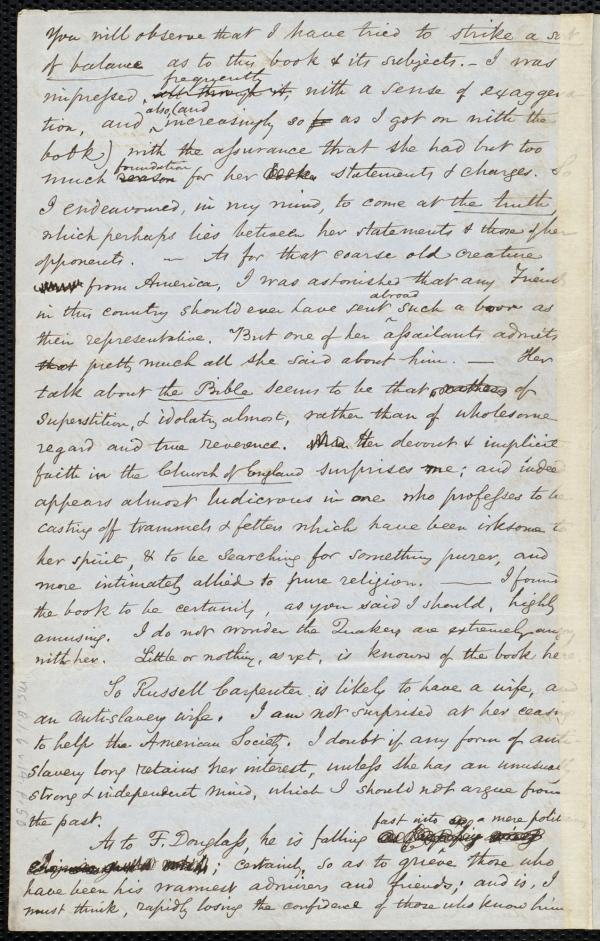 You will observe that I have tried to strike a sort
of balance as to this book & its subjects. – I was
frequently
impressed, all through it, with a sense of exaggera-
also, (and
tion, and increasingly so as I got on with the
book) with the assurance that she had but too
foundation
much reason for her statements & charges. So
I endeavoured, in my mind, to come at the truth
which perhaps lies between her statements & those of her
opponents. — As for that coarse old creature
from America, I was astonished that any Friends
abroad
in this country should ever have sent such a boor as
their representative. But one of her assailants admits
that pretty much all she said about him. — Her
talk about the Bible seems to be that rather of
Superstition, & idolatry almost, rather than of wholesome
regard and true reverence. Her devout & implicit
faith in the Church of England surprises me; and indeed
appears almost ludicrous in one who professes to be
casting off trammels & fetters which have been irksome to
her spirit, & to be searching for something purer, and
more intimately allied to pure religion. — I found
the book to be certainly, as you said I should, highly
amusing. I do not wonder the Quakers are extremely angry
with her. Little or nothing, as yet, is known of the book here.
So Russell Carpenter is likely to have a wife, and
an anti-slavery wife. I am not surprised at her ceasing
to help the American Society. I doubt if any form of anti-
slavery long retains her interest, unless she has an unusually
strong & independent mind, which I should not argue from
the past.
fast into a mere politician
As to F. Douglass, he is falling
; certainly so as to grieve those who
have been his warmest admirers and friends; and is, I
must think, rapidly losing the confidence of those who know him